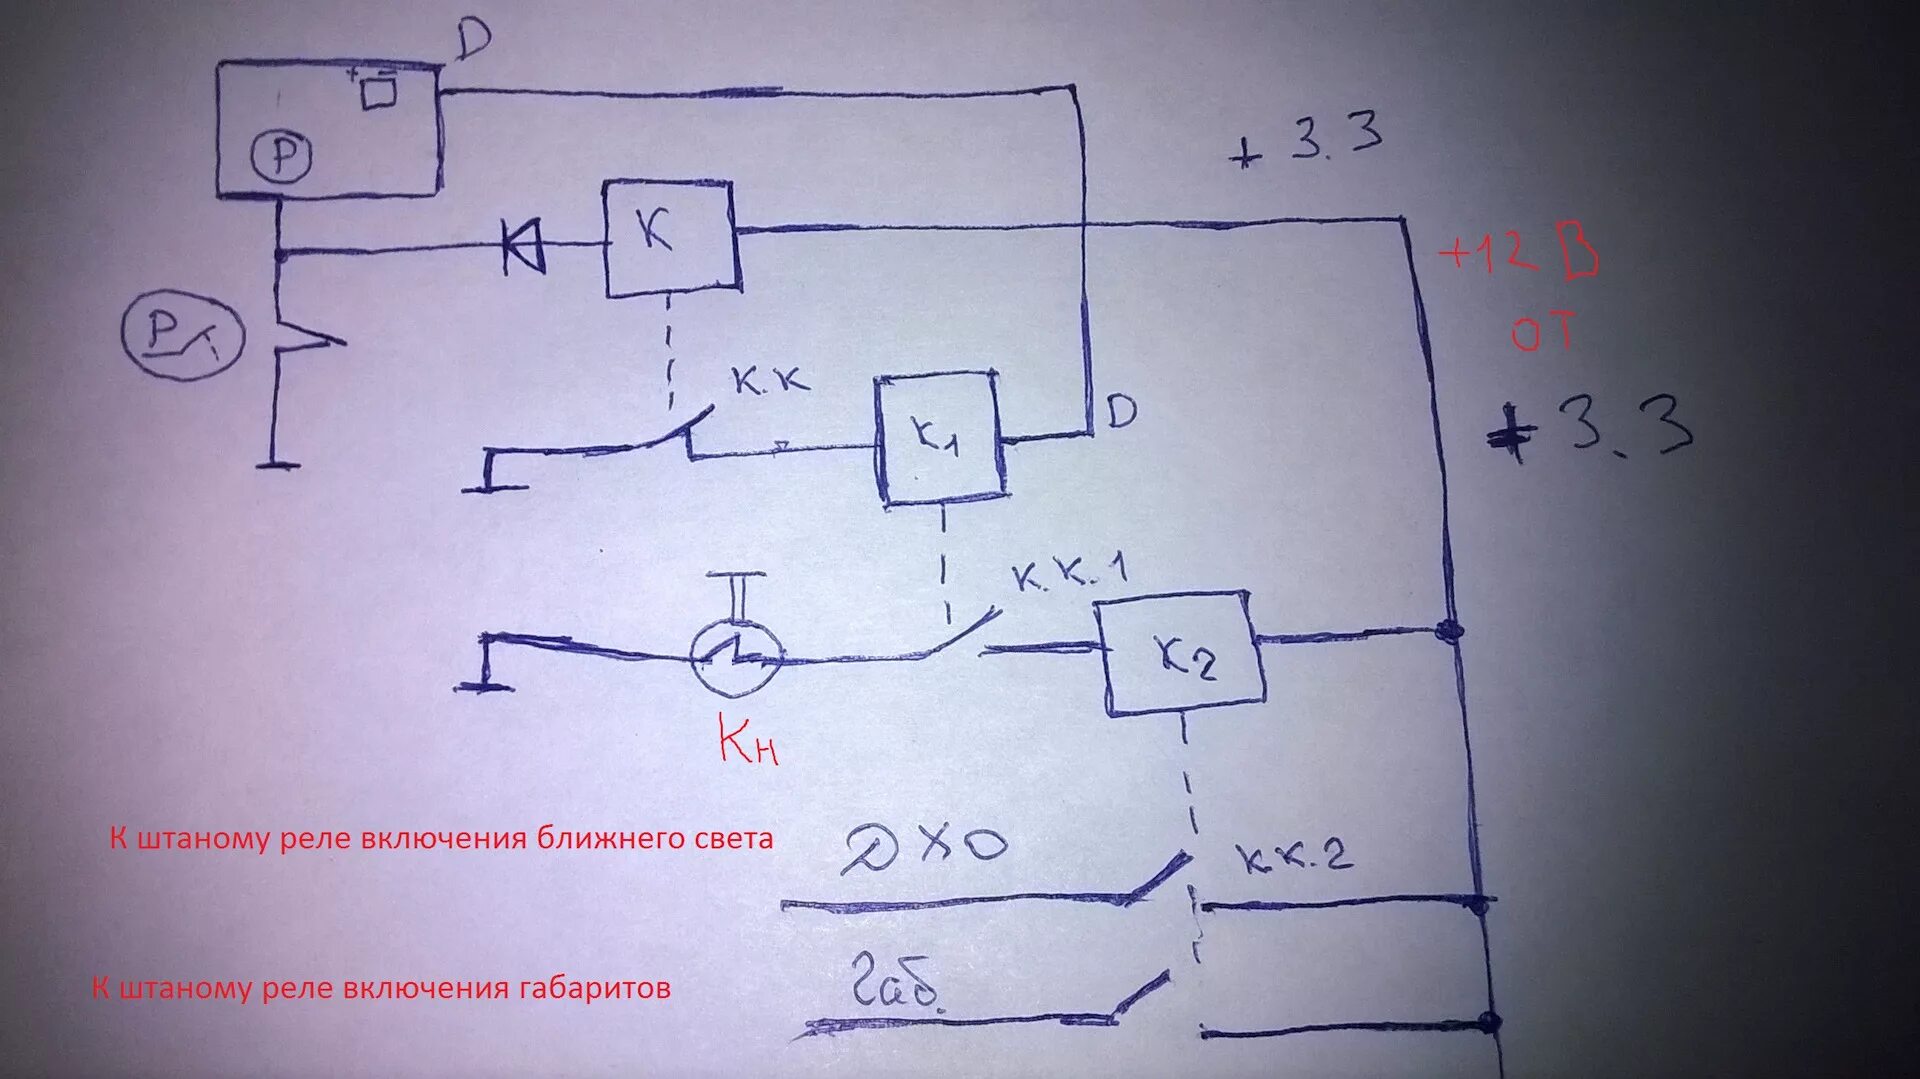 D
+ -
P
+ 3.3
K
+12 В
от
P
+ 3.3
K.K
K1
D
K.K.1
K2
Кн
К штаному реле включения ближнего света
ДХО
KK.2
К штаному реле включения габаритов
Габ.